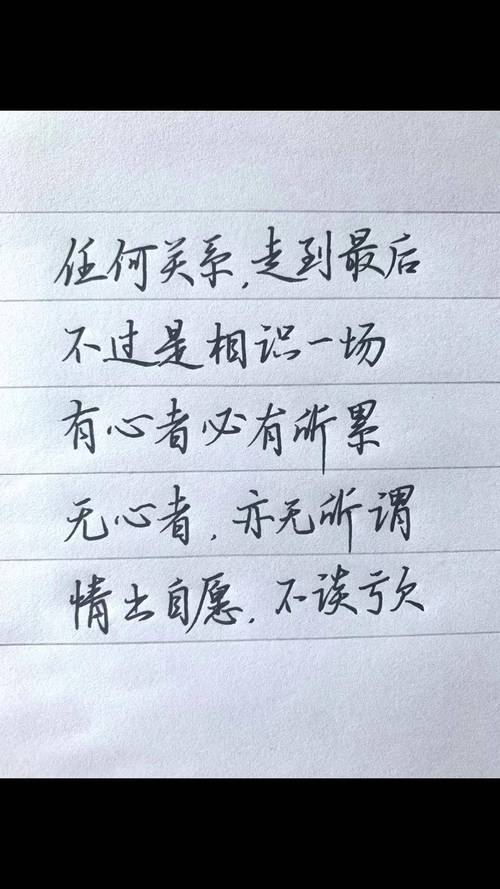 任何关系,走到最后
不过是相识一场
有心者必有所累
无心者,亦无所谓
情出自愿,不谈亏欠